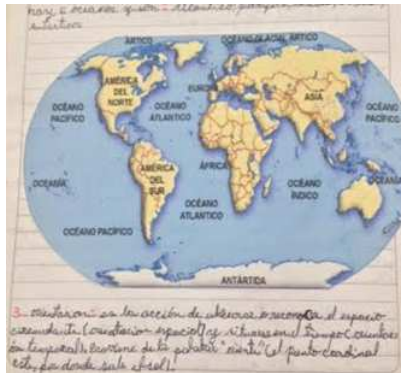 hay 5 océanos y son
ÁRTICO OCÉANO GLACIAL ÁRTICO
AMÉRICA
DEL
NORTE
EUROPA
ASIA
OCÉANO
PACÍFICO
OCÉANO
ATLANTICO
OCÉANO
PACÍFICO
ÁFRICA
AMÉRICA
DEL
SUR
OCEANÍA
OCEANÍA
OCÉANO
ÍNDICO
OCÉANO
ATLANTICO
OCÉANO PACÍFICO
ANTÁRTIDA
3- orientacion: es la acción de ubicarse o reconocer el espacio
circundante (orientacion espacial) y situarse en el tiempo (orientaci
ón temporal), de la palabra "oriente" (el punto cardinal
este, por donde sale el sol).